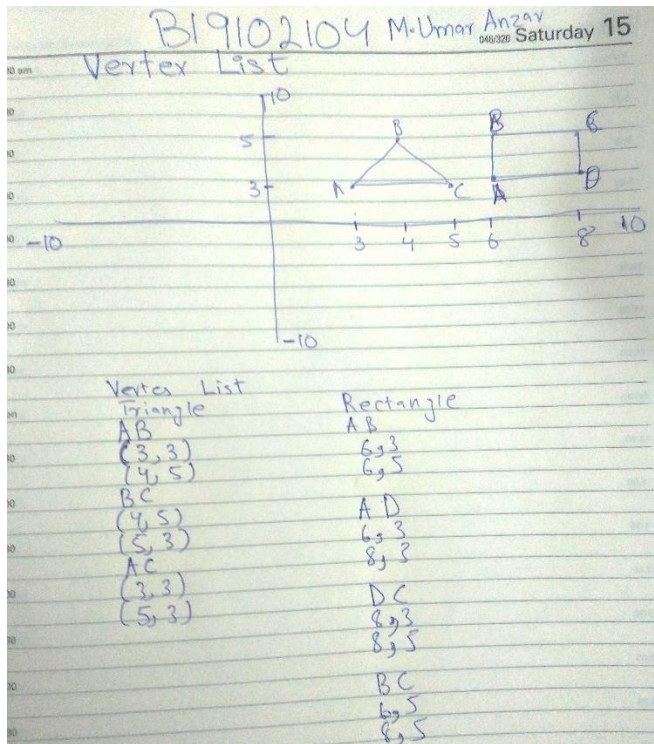 B19102104 M.Umar Anzar
046/320 Saturday 15
Verter List
10
5
3
-10
10
-10
A
B
C
B
C
A
D
3 4 5 6 8
Vertes List
Triangle
AB
(3,3)
(4,5)
BC
(4,5)
(5,3)
AC
(3,3)
(5,3)
Rectangle
AB
6,3
6,5
AD
6,3
8,3
DC
8,3
8,5
BC
6,5
8,5